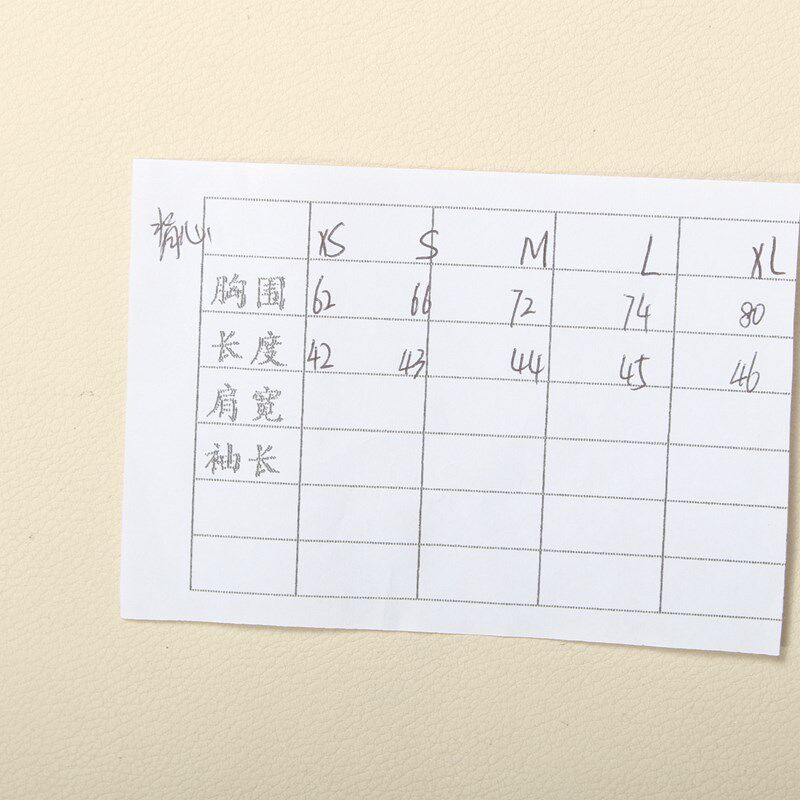 背心 XS S M L XL
胸围 62 66 72 74 80
长度 42 43 44 45 46
肩宽
袖长